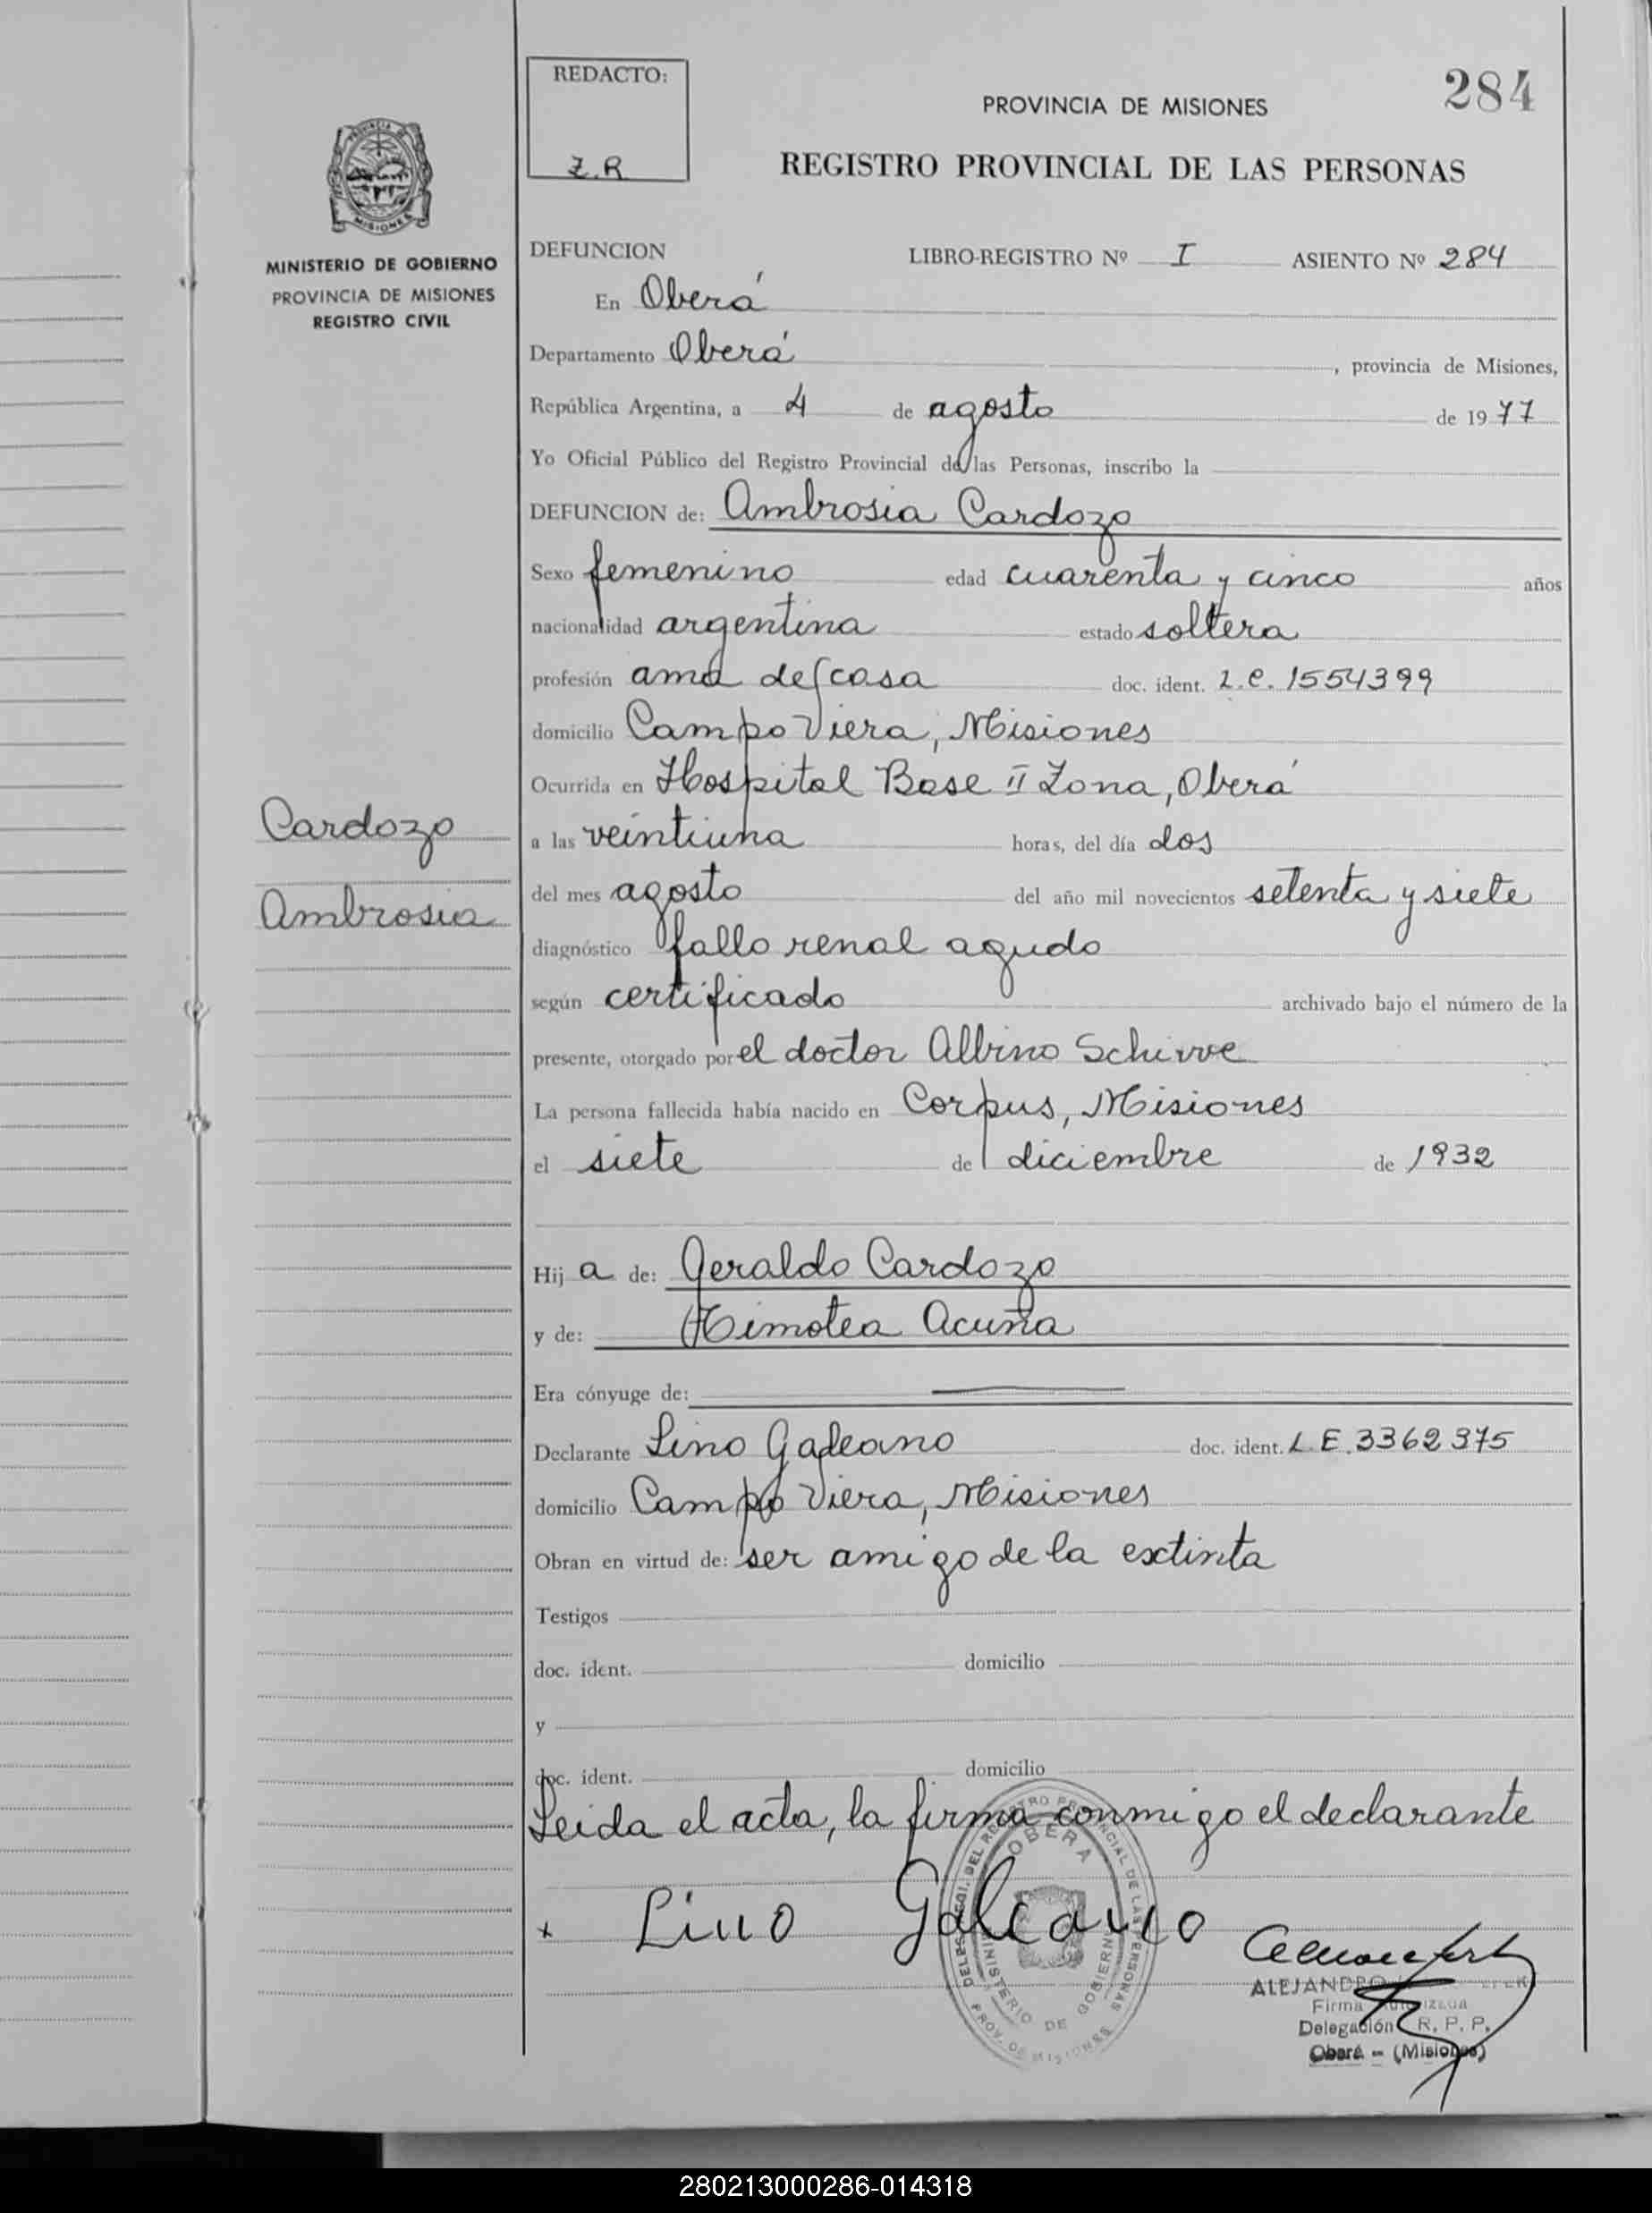 REDACTO:
Z.R
284
PROVINCIA DE MISIONES
REGISTRO PROVINCIAL DE LAS PERSONAS
MISIONES
MINISTERIO DE GOBIERNO
PROVINCIA DE MISIONES
REGISTRO CIVIL
DEFUNCION LIBRO-REGISTRO Nº I ASIENTO Nº 284
En Oberá
Departamento Oberá, provincia de Misiones,
República Argentina, a 4 de agosto de 1977
Yo Oficial Público del Registro Provincial de las Personas, inscribo la
DEFUNCION de: Ambrosia Cardozo
Sexo femenino edad cuarenta y cinco años
nacionalidad argentina estado soltera
profesión ama de casa doc. ident. L.C. 1554399
domicilio Campo Viera, Misiones
Ocurrida en Hospital Base II Zona, Oberá
Cardozo
Ambrosia
a las veintiuna horas, del día dos
del mes agosto del año mil novecientos setenta y siete
diagnóstico fallo renal agudo
según certificado archivado bajo el número de la
presente, otorgado por el doctor Albino
La persona fallecida había nacido en Corpus, Misiones
el siete de diciembre de 1932
Hij a de: Geraldo Cardozo
y de: Timotea Acuña
Era cónyuge de:
Declarante Lino Galeano doc. ident. L.E. 3362375
domicilio Campo Viera, Misiones
Obran en virtud de: ser amigo de la extinta
Testigos
doc. ident. domicilio
y
doc. ident. domicilio
Leida el acta, la firma conmigo el declarante
Lino Galeano
OBERA
MINISTERIO DE GOBIERNO
PROV. DE MISIONES
ALEJANDRO
Firma Autorizada
Delegación R. P. P.
Oberá - (Misiones)
280213000286-014318